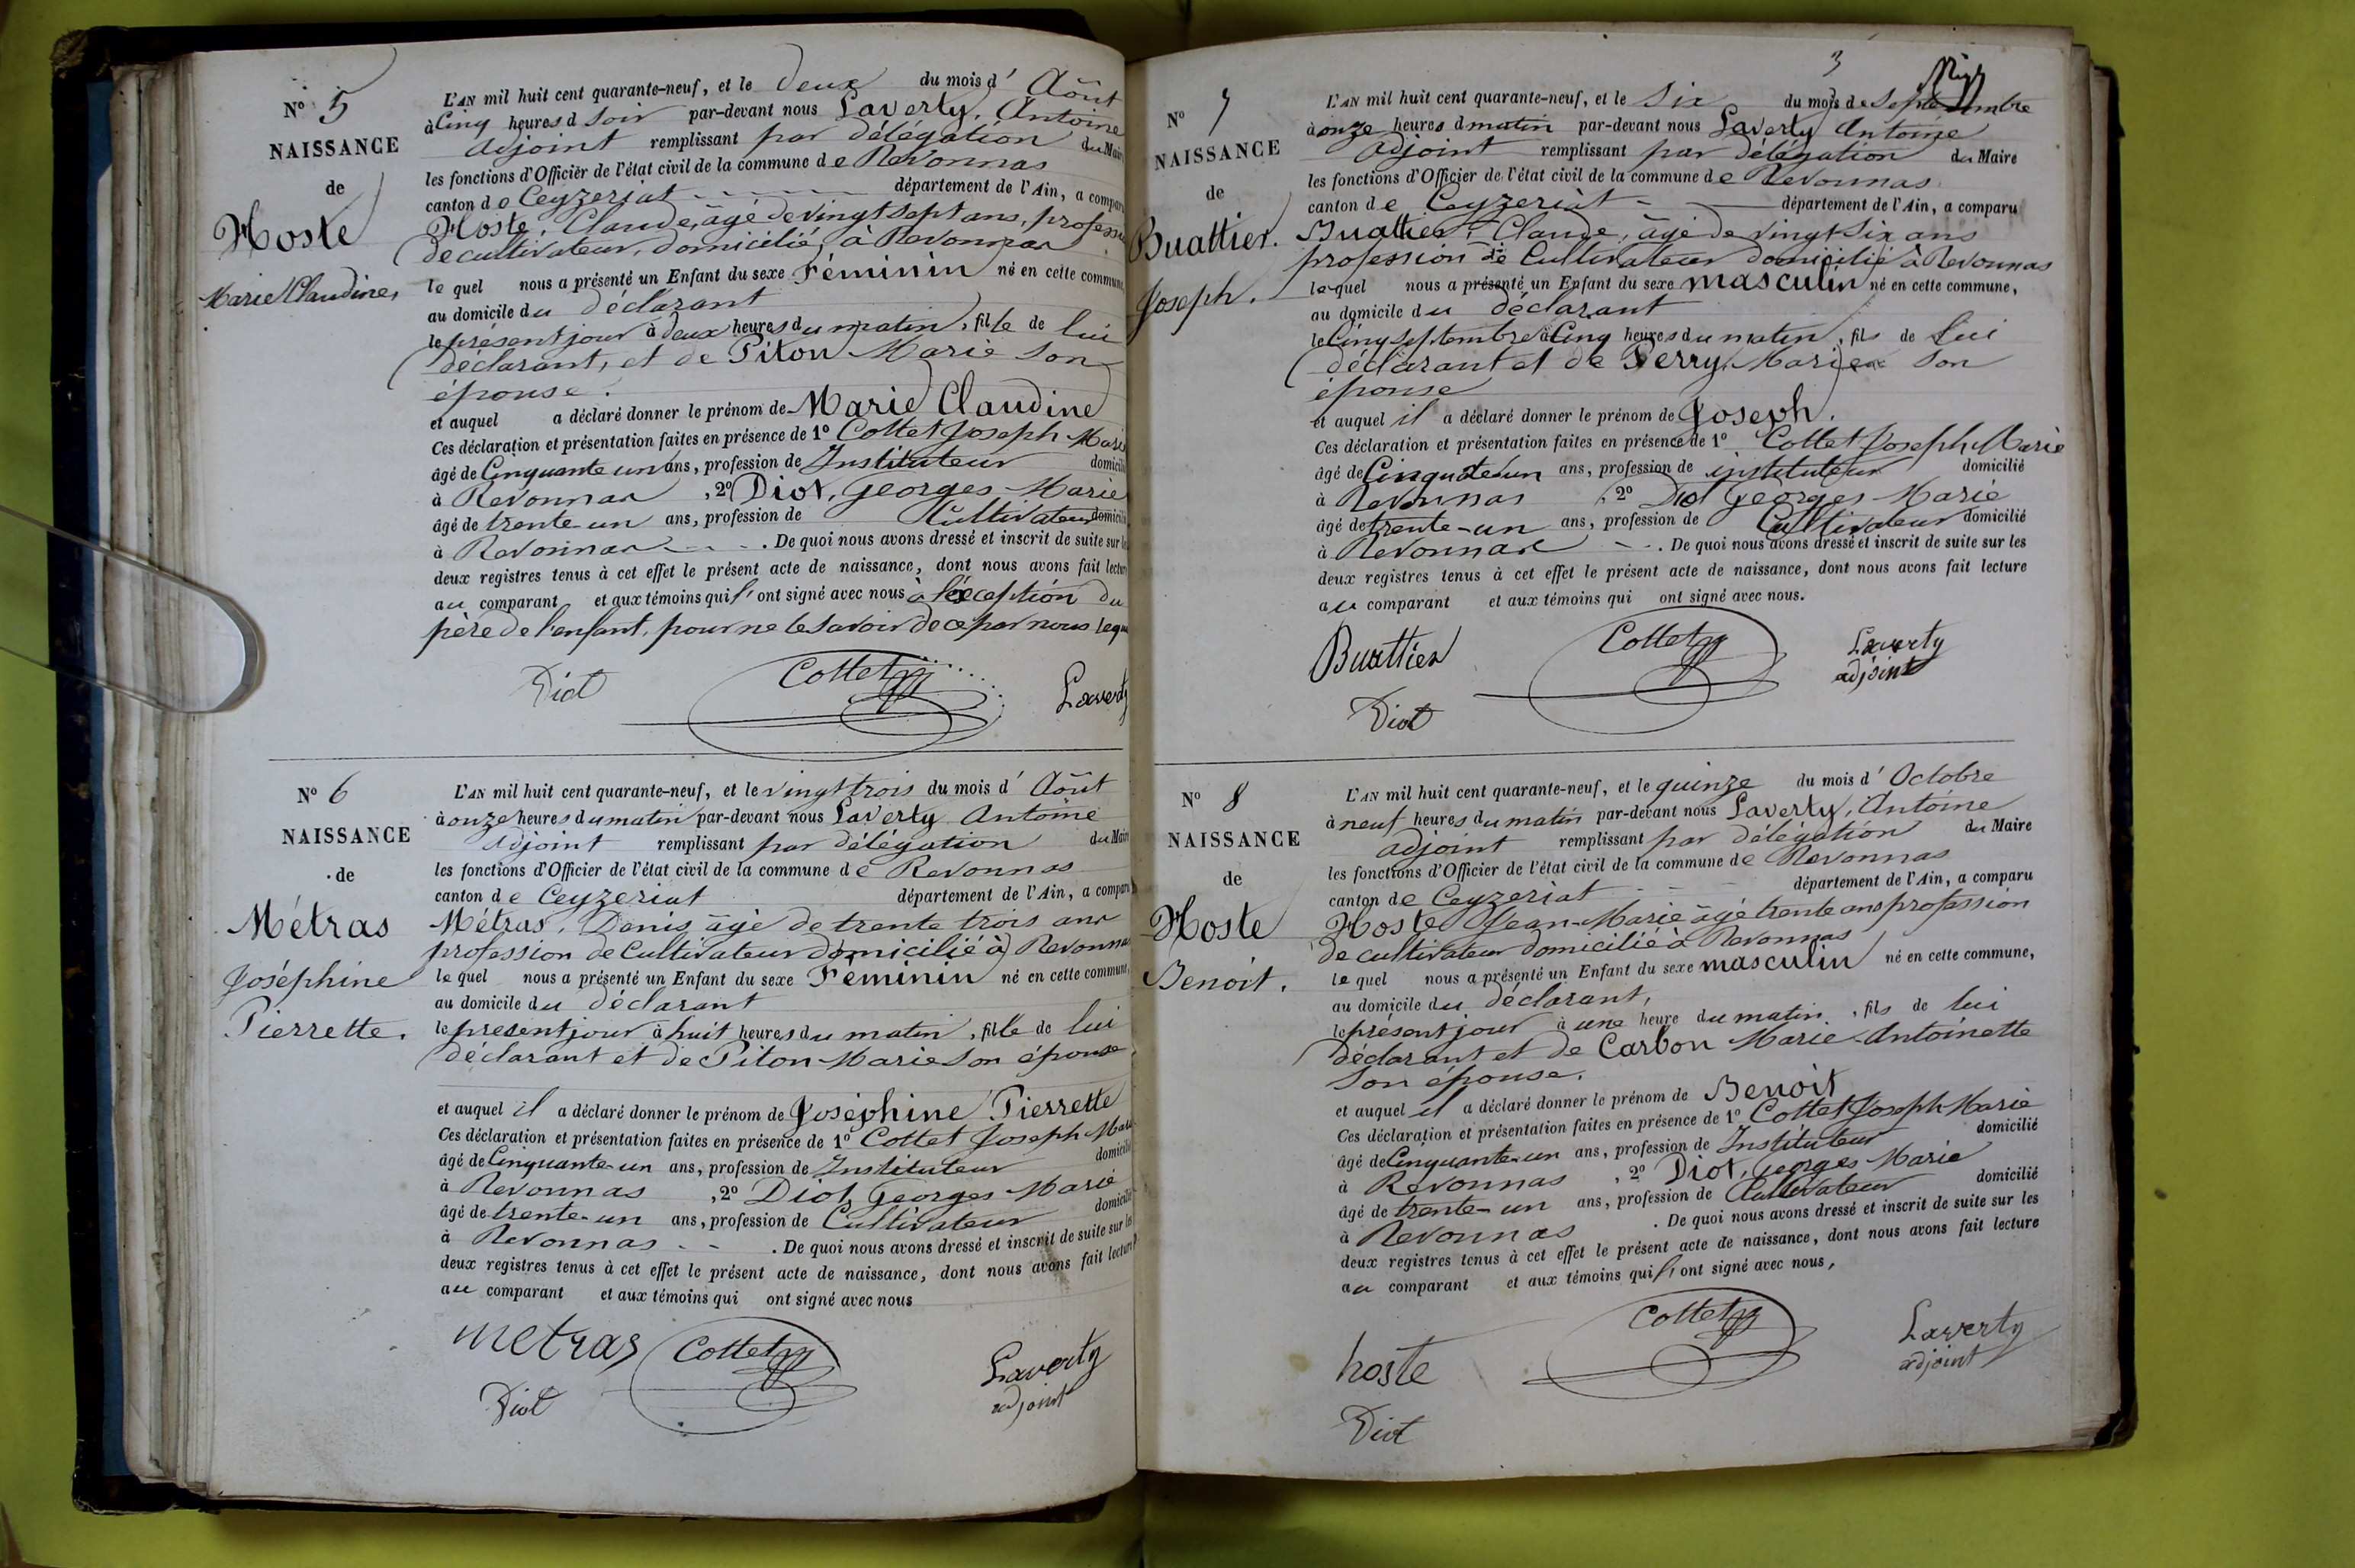 N° 5
NAISSANCE
de
Hoste
Marie Claudine,
L'AN mil huit cent quarante-neuf, et le deux du mois d' Août
à Cinq heures d soir par-devant nous Laverty, Antoine
adjoint remplissant par délégation du Mair
les fonctions d'Officier de l'état civil de la commune de Revonnas
canton de Ceyzeriat département de l'Ain, a compar
Hoste, Claude, âgé de vingt sept ans, professi
de cultivateur, domicilié, à Revonnas
le quel nous a présenté un Enfant du sexe Féminin né en cette commune,
au domicile du déclarant
le présent jour à deux heures du matin, fille de lui
déclarant, et de Piton Marie son
épouse.
et auquel a déclaré donner le prénom de Marie Claudine
Ces déclaration et présentation faites en présence de 1° Cottet Joseph Marie
âgé de Cinquante un ans, profession de Instituteur domicili
à Revonnas , 2° Diot, Georges Marie
âgé de trente un ans, profession de Cultivateur domicili
à Revonnas - - . De quoi nous avons dressé et inscrit de suite sur le
deux registres tenus à cet effet le présent acte de naissance, dont nous avons fait lectur
au comparant et aux témoins qui l' ont signé avec nous à l'éxception du
père de l'enfant, pour ne le savoir de ce par nous requ
Diot Cottet Laverty
N° 6
NAISSANCE
de
Métras
Joséphine
Pierrette.
L'AN mil huit cent quarante-neuf, et le vingt trois du mois d' Août
à onze heures du matin par-devant nous Laverty Antoine
adjoint remplissant par délégation du Mair
les fonctions d'Officier de l'état civil de la commune de Revonnas
canton de Ceyzeriat département de l'Ain, a comparu
Métras, Denis, âgé de trente trois ans
profession de Cultivateur domicilié à Revonnas
le quel nous a présenté un Enfant du sexe Féminin né en cette commune,
au domicile du déclarant
le présent jour à huit heures du matin, fille de lui
déclarant et de Piton Marie son épouse
et auquel il a déclaré donner le prénom de Joséphine Pierrette
Ces déclaration et présentation faites en présence de 1° Cottet Joseph Marie
âgé de Cinquante-un ans, profession de Instituteur domicilié
à Revonnas , 2° Diot, Georges Marie
âgé de trente-un ans, profession de Cultivateur domicilié
à Revonnas - - . De quoi nous avons dressé et inscrit de suite sur les
deux registres tenus à cet effet le présent acte de naissance, dont nous avons fait lecture
au comparant et aux témoins qui ont signé avec nous
metras Cottet Laverty
Diot adjoint
3
N° 7
NAISSANCE
de
Buattier.
Joseph.
L'AN mil huit cent quarante-neuf, et le six du mois de septembre
à onze heures d matin par-devant nous Laverty Antoine
adjoint remplissant par délégation du Maire
les fonctions d'Officier de l'état civil de la commune de Revonnas
canton de Ceyzeriat - département de l'Ain, a comparu
Buattier, Claude, âgé de vingt six ans
profession de Cultivateur domicilié à Revonnas
le quel nous a présenté un Enfant du sexe masculin né en cette commune,
au domicile du déclarant
le Cinq septembre à Cinq heures du matin, fils de lui
déclarant et de Perry, Marie son
épouse
et auquel il a déclaré donner le prénom de Joseph.
Ces déclaration et présentation faites en présence de 1° Cottet Joseph Marie
âgé de Cinquate un ans, profession de instituteur domicilié
à Revonnas , 2° Diot Georges Marie
âgé de trente-un ans, profession de Cultivateur domicilié
à Revonnas - - . De quoi nous avons dressé et inscrit de suite sur les
deux registres tenus à cet effet le présent acte de naissance, dont nous avons fait lecture
au comparant et aux témoins qui ont signé avec nous.
Buattier Cottet Laverty
adjoint
Diot
N° 8
NAISSANCE
de
Hoste
Benoit.
L'AN mil huit cent quarante-neuf, et le quinze du mois d' Octobre
à neuf heures du matin par-devant nous Laverty, Antoine
adjoint remplissant par délégation du Maire
les fonctions d'Officier de l'état civil de la commune de Revonnas
canton de Ceyzeriat - - département de l'Ain, a comparu
Hoste Jean-Marie âgé trente ans profession
de cultivateur domicilié à Revonnas
le quel nous a présenté un Enfant du sexe masculin né en cette commune,
au domicile du déclarant,
le présent jour à une heure du matin, fils de lui
déclarant et de Carbon Marie-Antoinette
son épouse.
et auquel il a déclaré donner le prénom de Benoit
Ces déclaration et présentation faites en présence de 1° Cottet Joseph Marie
âgé de Cinquante-un ans, profession de Instituteur domicilié
à Revonnas , 2° Diot, Georges Marie
âgé de trente-un ans, profession de Cultivateur domicilié
à Revonnas . De quoi nous avons dressé et inscrit de suite sur les
deux registres tenus à cet effet le présent acte de naissance, dont nous avons fait lecture
au comparant et aux témoins qui l' ont signé avec nous,
hoste Cottet Laverty
adjoint
Diot